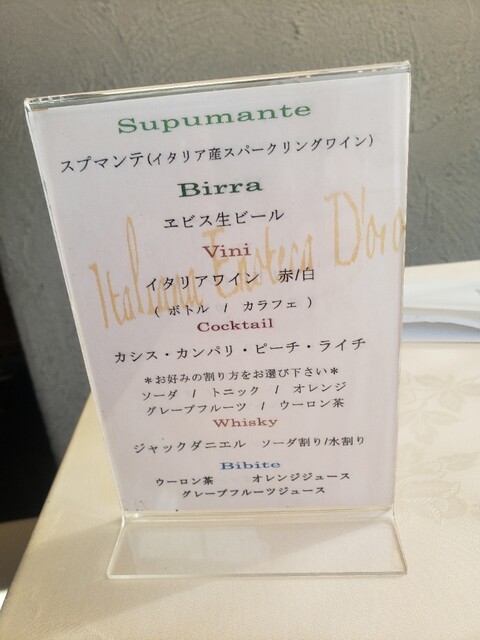 Supumante
スプマンテ(イタリア産スパークリングワイン)
Birra
ヱビス生ビール
Vini
Italiana Enoteca D'oro
イタリアワイン 赤/白
( ボトル / カラフェ )
Cocktail
カシス・カンパリ・ピーチ・ライチ
*お好みの割り方をお選び下さい*
ソーダ / トニック / オレンジ
グレープフルーツ / ウーロン茶
Whisky
ジャックダニエル ソーダ割り/水割り
Bibite
ウーロン茶 オレンジジュース
グレープフルーツジュース